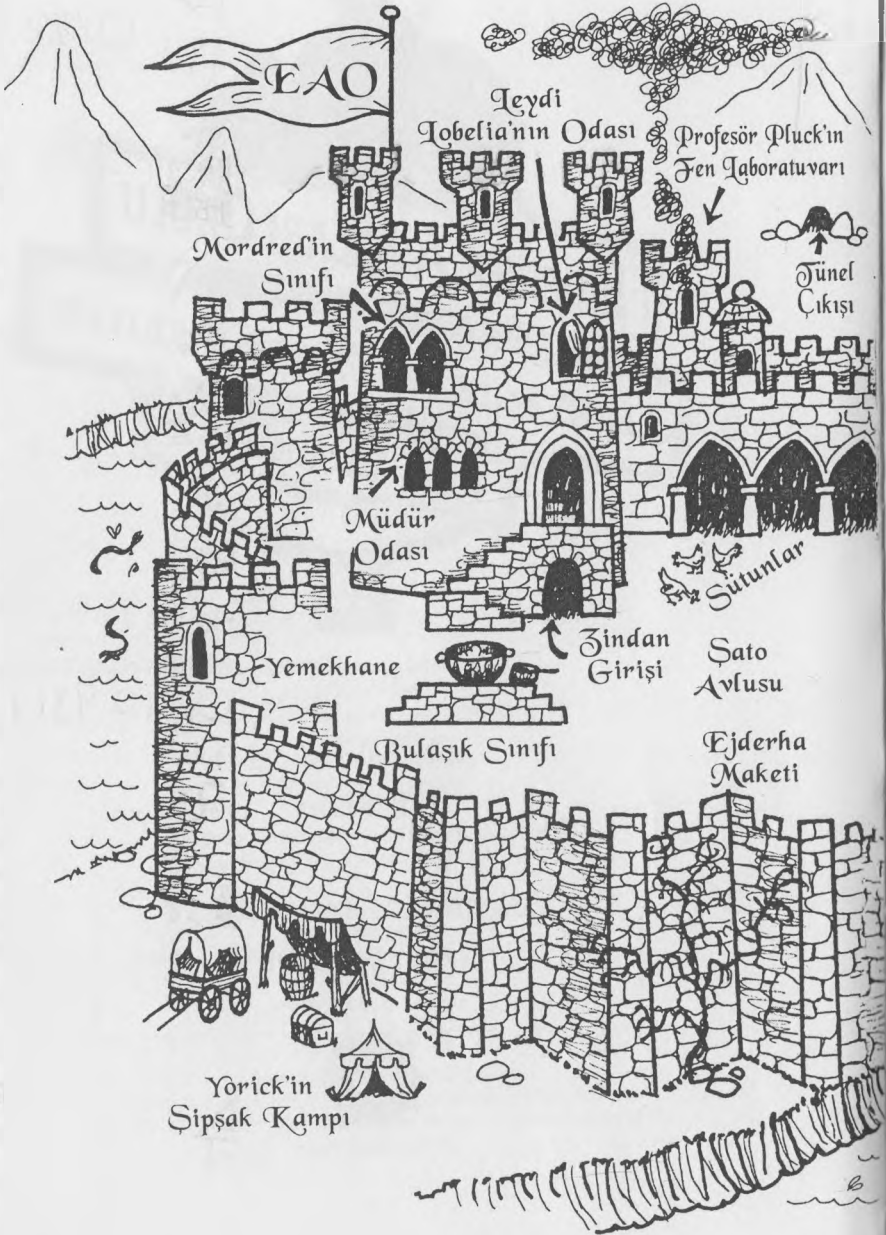 EAO
Leydi
Lobelia'nın Odası
Profesör Pluck'ın
Fen Laboratuvarı
Mordred'in
Sınıfı
Tünel
Çıkışı
Müdür
Odası
Sütunlar
Zindan
Girişi
Şato
Avlusu
Yemekhane
Bulaşık Sınıfı
Ejderha
Maketi
Yorick'in
Şipşak Kampı